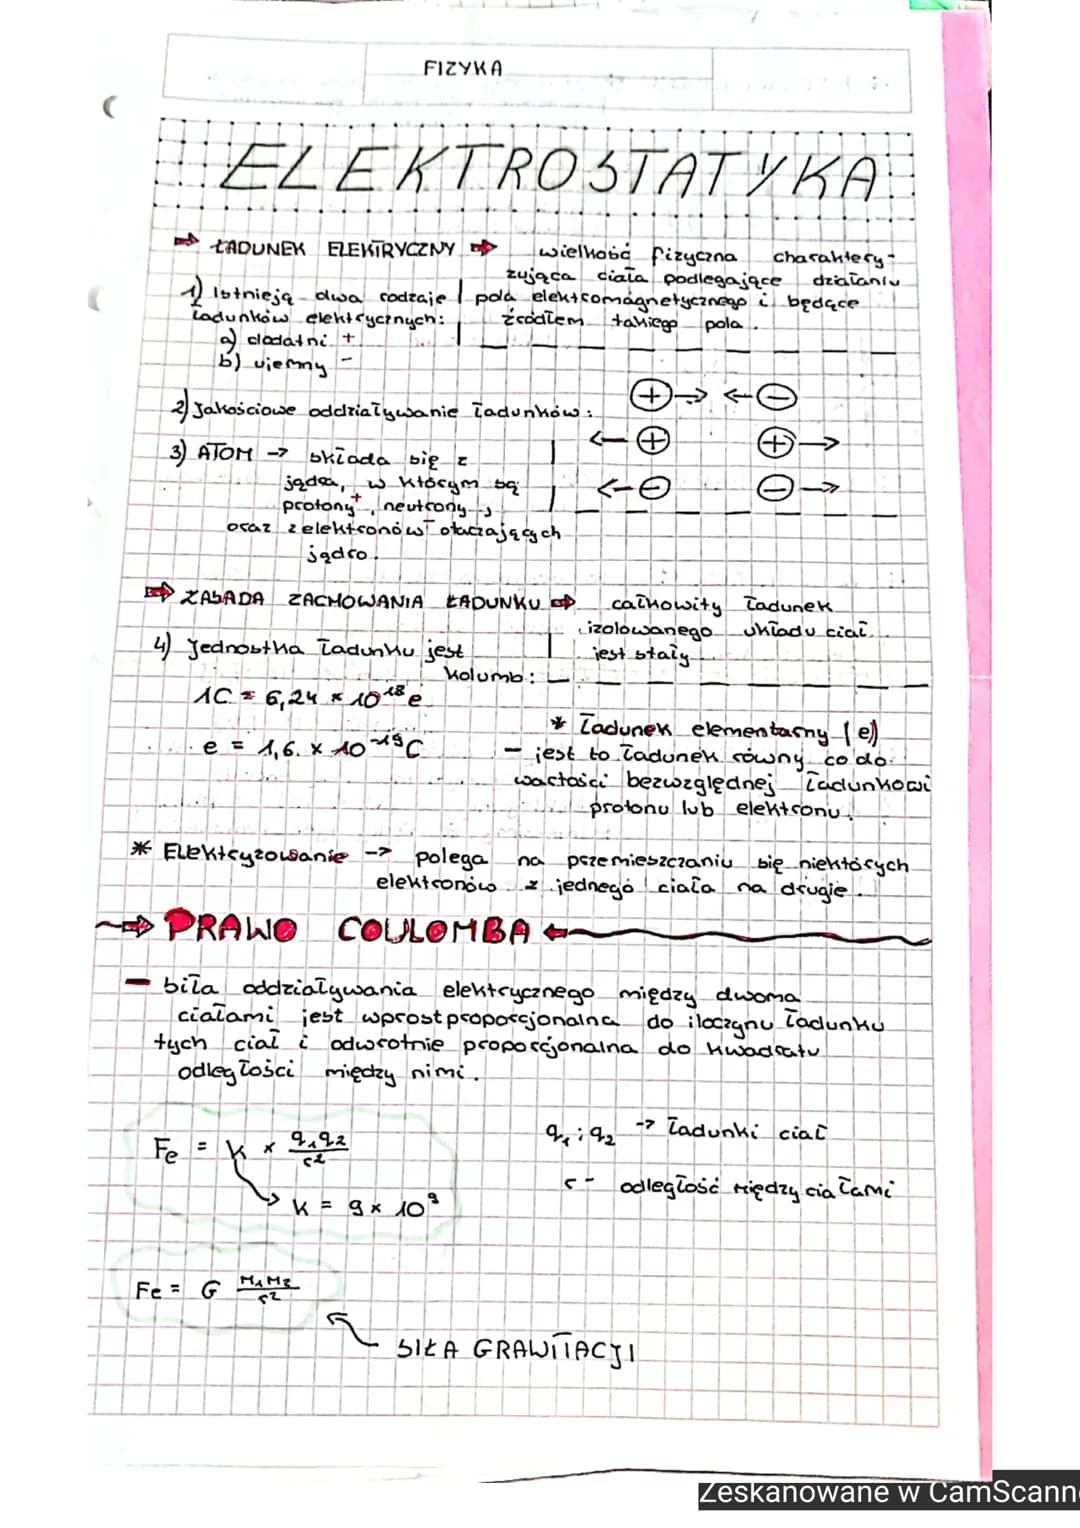 FIZYKA
ELEKTROSTATYKA
⇒ ŁADUNEK ELEKTRYCZNY ⇒ wielkość fizyczna charaktery-
zująca ciała podlegające działaniu
1) Istnieją dwa rodzaje pola elektromagnetycznego i będące
ładunków elektrycznych: źródłem takiego pola.
a) dodatni +
b) ujemny -
2) Jakościowe oddziaływanie ładunków:
⊕→ ←⊖
←⊕ ⊕→
←⊖ ⊖→
3) ATOM → składa się z
jądra, w którym są
protony⁺, neutrony,
oraz z elektronów⁻ otaczających
jądro.
⇒ ZASADA ZACHOWANIA ŁADUNKU ⇒ całkowity ładunek
izolowanego układu ciał
jest stały
4) Jednostką ładunku jest
kolumb:
1C = 6,24 × 10¹⁸ e
e = 1,6 × 10⁻¹⁹ C
* ładunek elementarny (e)
- jest to ładunek równy co do
wartości bezwzględnej ładunkowi
protonu lub elektronu.
* Elektryzowanie → polega na przemieszczaniu się niektórych
elektronów z jednego ciała na drugie.
⇒ PRAWO COULOMBA ←
- siła oddziaływania elektrycznego między dwoma
ciałami jest wprostproporcjonalna do iloczynu ładunku
tych ciał i odwrotnie proporcjonalna do kwadratu
odległości między nimi.
Fe = k × q₁q₂/r²
q₁ i q₂ → ładunki ciał
r - odległość między ciałami
k = 9 × 10⁹
Fe = G M₁M₂/r²
SIŁA GRAWITACJI
Zeskanowane w CamScann